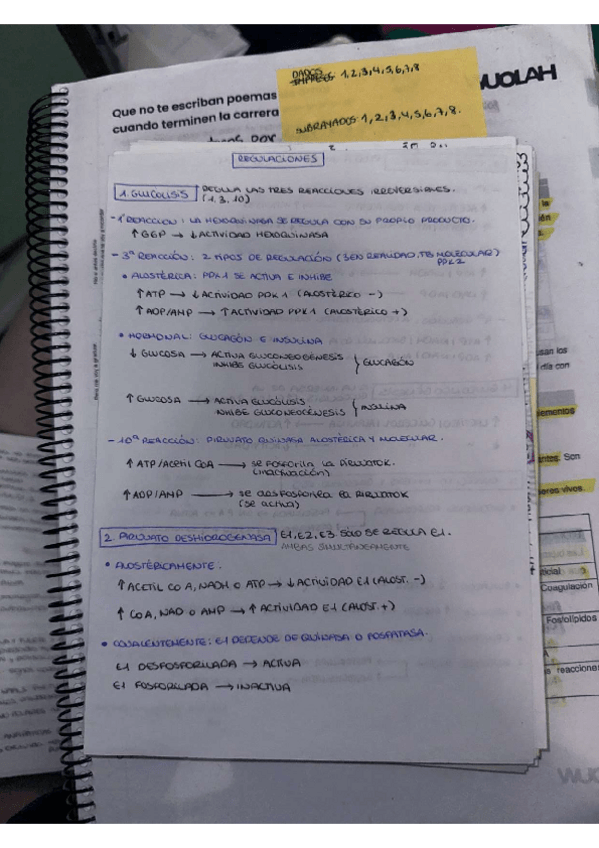 Que no te escriban poemas
cuando terminen la carrera
WUOLAH
DADOS 1,2,3,4,5,6,7,8
SUBRAYADOS: 1,2,3,4,5,6,7,8.
REGULACIONES
1. GLUCOLISIS REGULA LAS TRES REACCIONES IRREVERSIBLES.
(1.3.10)
- 1ª REACCION: LA HEXOQUINASA SE REGULA CON SU PROPIO PRODUCTO.
↑ G6P → ↓ ACTIVIDAD HEXOQUINASA
- 3ª REACCIÓN: 2 TIPOS DE REGULACIÓN (3 EN REALIDAD, TB MOLECULAR)
PFK2
• ALOSTÉRICA: PFK1 SE ACTIVA E INHIBE
↑ ATP → ↓ ACTIVIDAD PFK1 (ALOSTÉRICO -)
↑ ADP/AMP → ↑ ACTIVIDAD PFK1 (ALOSTÉRICO +)
• HORMONAL: GLUCAGÓN E INSULINA
↓ GLUCOSA → ACTIVA GLUCONEOGÉNESIS
INHIBE GLUCÓLISIS } GLUCAGÓN
↑ GLUCOSA → ACTIVA GLUCÓLISIS
INHIBE GLUCONEOGÉNESIS } INSULINA
- 10ª REACCIÓN: PIRUVATO QUINASA ALOSTÉRICA Y MOLECULAR.
↑ ATP/ACETIL COA → se FOSFORILA LA PIRUVATOK.
(INACTIVACIÓN)
↑ ADP/AMP → se desfosforila la PIRUVATOK
(se activa)
2. PIRUVATO DESHIDROGENASA E1, E2, E3. SOLO SE REGULA E1.
AMBAS SIMULTANEAMENTE
• ALOSTÉRICAMENTE:
↑ ACETIL CO A, NADH O ATP → ↓ ACTIVIDAD E1 (ALOST. -)
↑ COA, NAD O AMP → ↑ ACTIVIDAD E1 (ALOST. +)
• COVALENTEMENTE: E1 DEPENDE DE QUINASA O FOSFATASA.
E1 DESFOSFORILADA → ACTIVA
E1 FOSFORILADA → INACTIVA
usan los
día con
elementos
Son
seres vivos.
Coagulación
Fosfolípidos
s reacciones
WUO